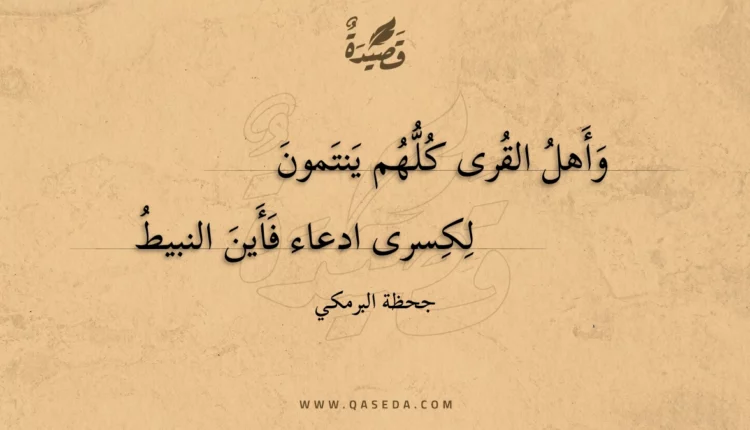 قَصِيْدَةٌ
وَأَهلُ القُرى كُلُّهُم يَنتَمونَ
لِكِسرى ادعاء فَأَينَ النبيطُ
جحظة البرمكي
WWW.QASEDA.COM